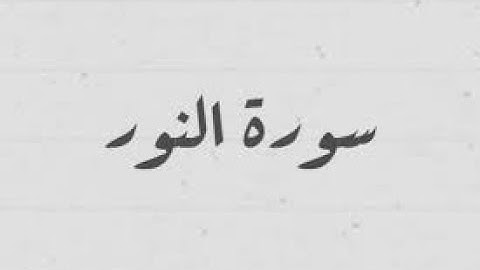 سورة النور